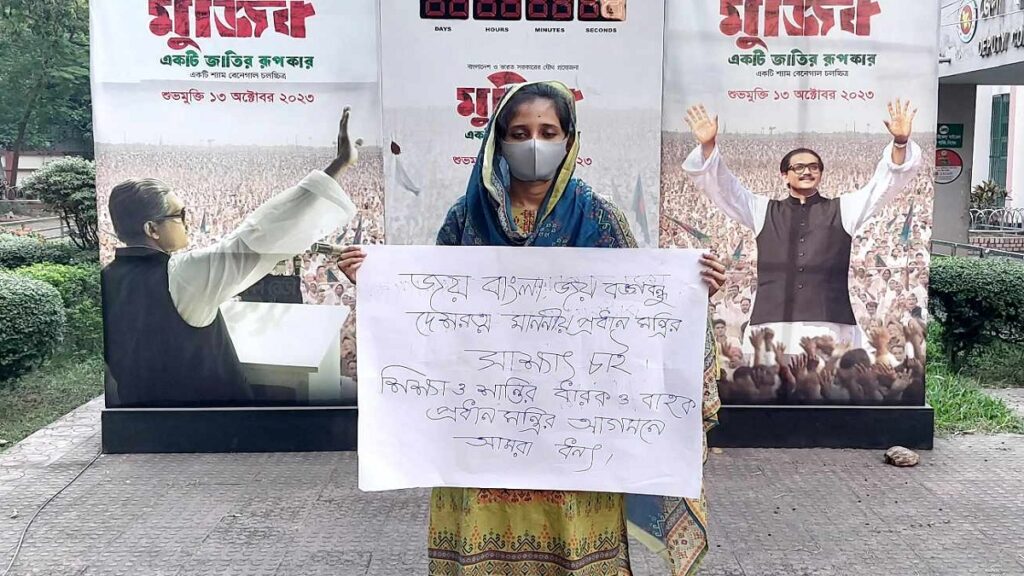 মুজিব
একটি জাতির রূপকার
একটি শ্যাম বেনেগাল চলচ্চিত্র
শুভমুক্তি ১৩ অক্টোবর ২০২৩
DAYS HOURS MINUTES SECONDS
বাংলাদেশ ও ভারত সরকারের যৌথ প্রযোজনা
মুজিব
মুজিব
একটি জাতির রূপকার
একটি শ্যাম বেনেগাল চলচ্চিত্র
শুভমুক্তি ১৩ অক্টোবর ২০২৩
জয় বাংলা জয় বঙ্গবন্ধু
দেশরত্ন মাননীয় প্রধান মন্ত্রির
সাক্ষাৎ চাই।
শিক্ষা ও শান্তির ধারক ও বাহক
প্রধান মন্ত্রির আগমনে
আমরা ধন্য।